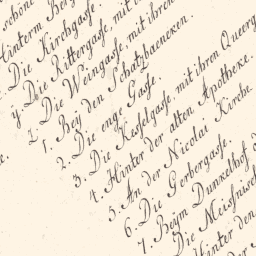 schöne
Hinterm Berg
Die Kirchgasse.
y. Die Rittergasse, mit
z. Die Weingasse, mit ihren
1. Bey den Schatzbaencken.
2. Die enge Gasse.
3. Die Kesselgasse, mit ihren Querg
4. Hinter der alten Apotheke.
5. An der Nicolai Kirche
6. Die Gerbergasse.
7. Beym Dunkelhof
Die Meissnisch
Hinter den
der